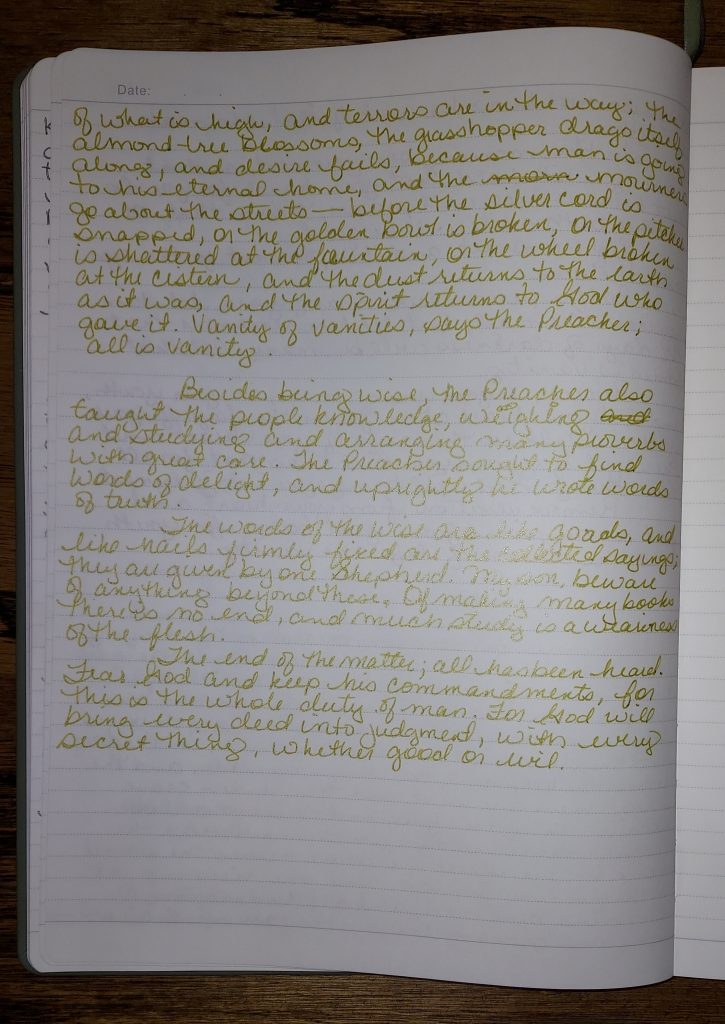 Date:
of what is high, and terrors are in the way; the
almond tree blossoms, the grasshopper drags itself
along, and desire fails, because man is going
to his eternal home, and the morn mourners
go about the streets — before the silver cord is
snapped, or the golden bowl is broken, or the pitcher
is shattered at the fountain, or the wheel broken
at the cistern, and the dust returns to the earth
as it was, and the spirit returns to God who
gave it. Vanity of vanities, says the Preacher;
all is vanity.
Besides being wise, the Preacher also
taught the people knowledge, weighing and
and studying and arranging many proverbs
with great care. The Preacher sought to find
words of delight, and uprightly he wrote words
of truth.
The words of the wise are like goads, and
like nails firmly fixed are the collected sayings;
they are given by one Shepherd. My son, beware
of anything beyond these. Of making many books
there is no end, and much study is a weariness
of the flesh.
The end of the matter; all has been heard.
Fear God and keep his commandments, for
this is the whole duty of man. For God will
bring every deed into judgment, with every
secret thing, whether good or evil.